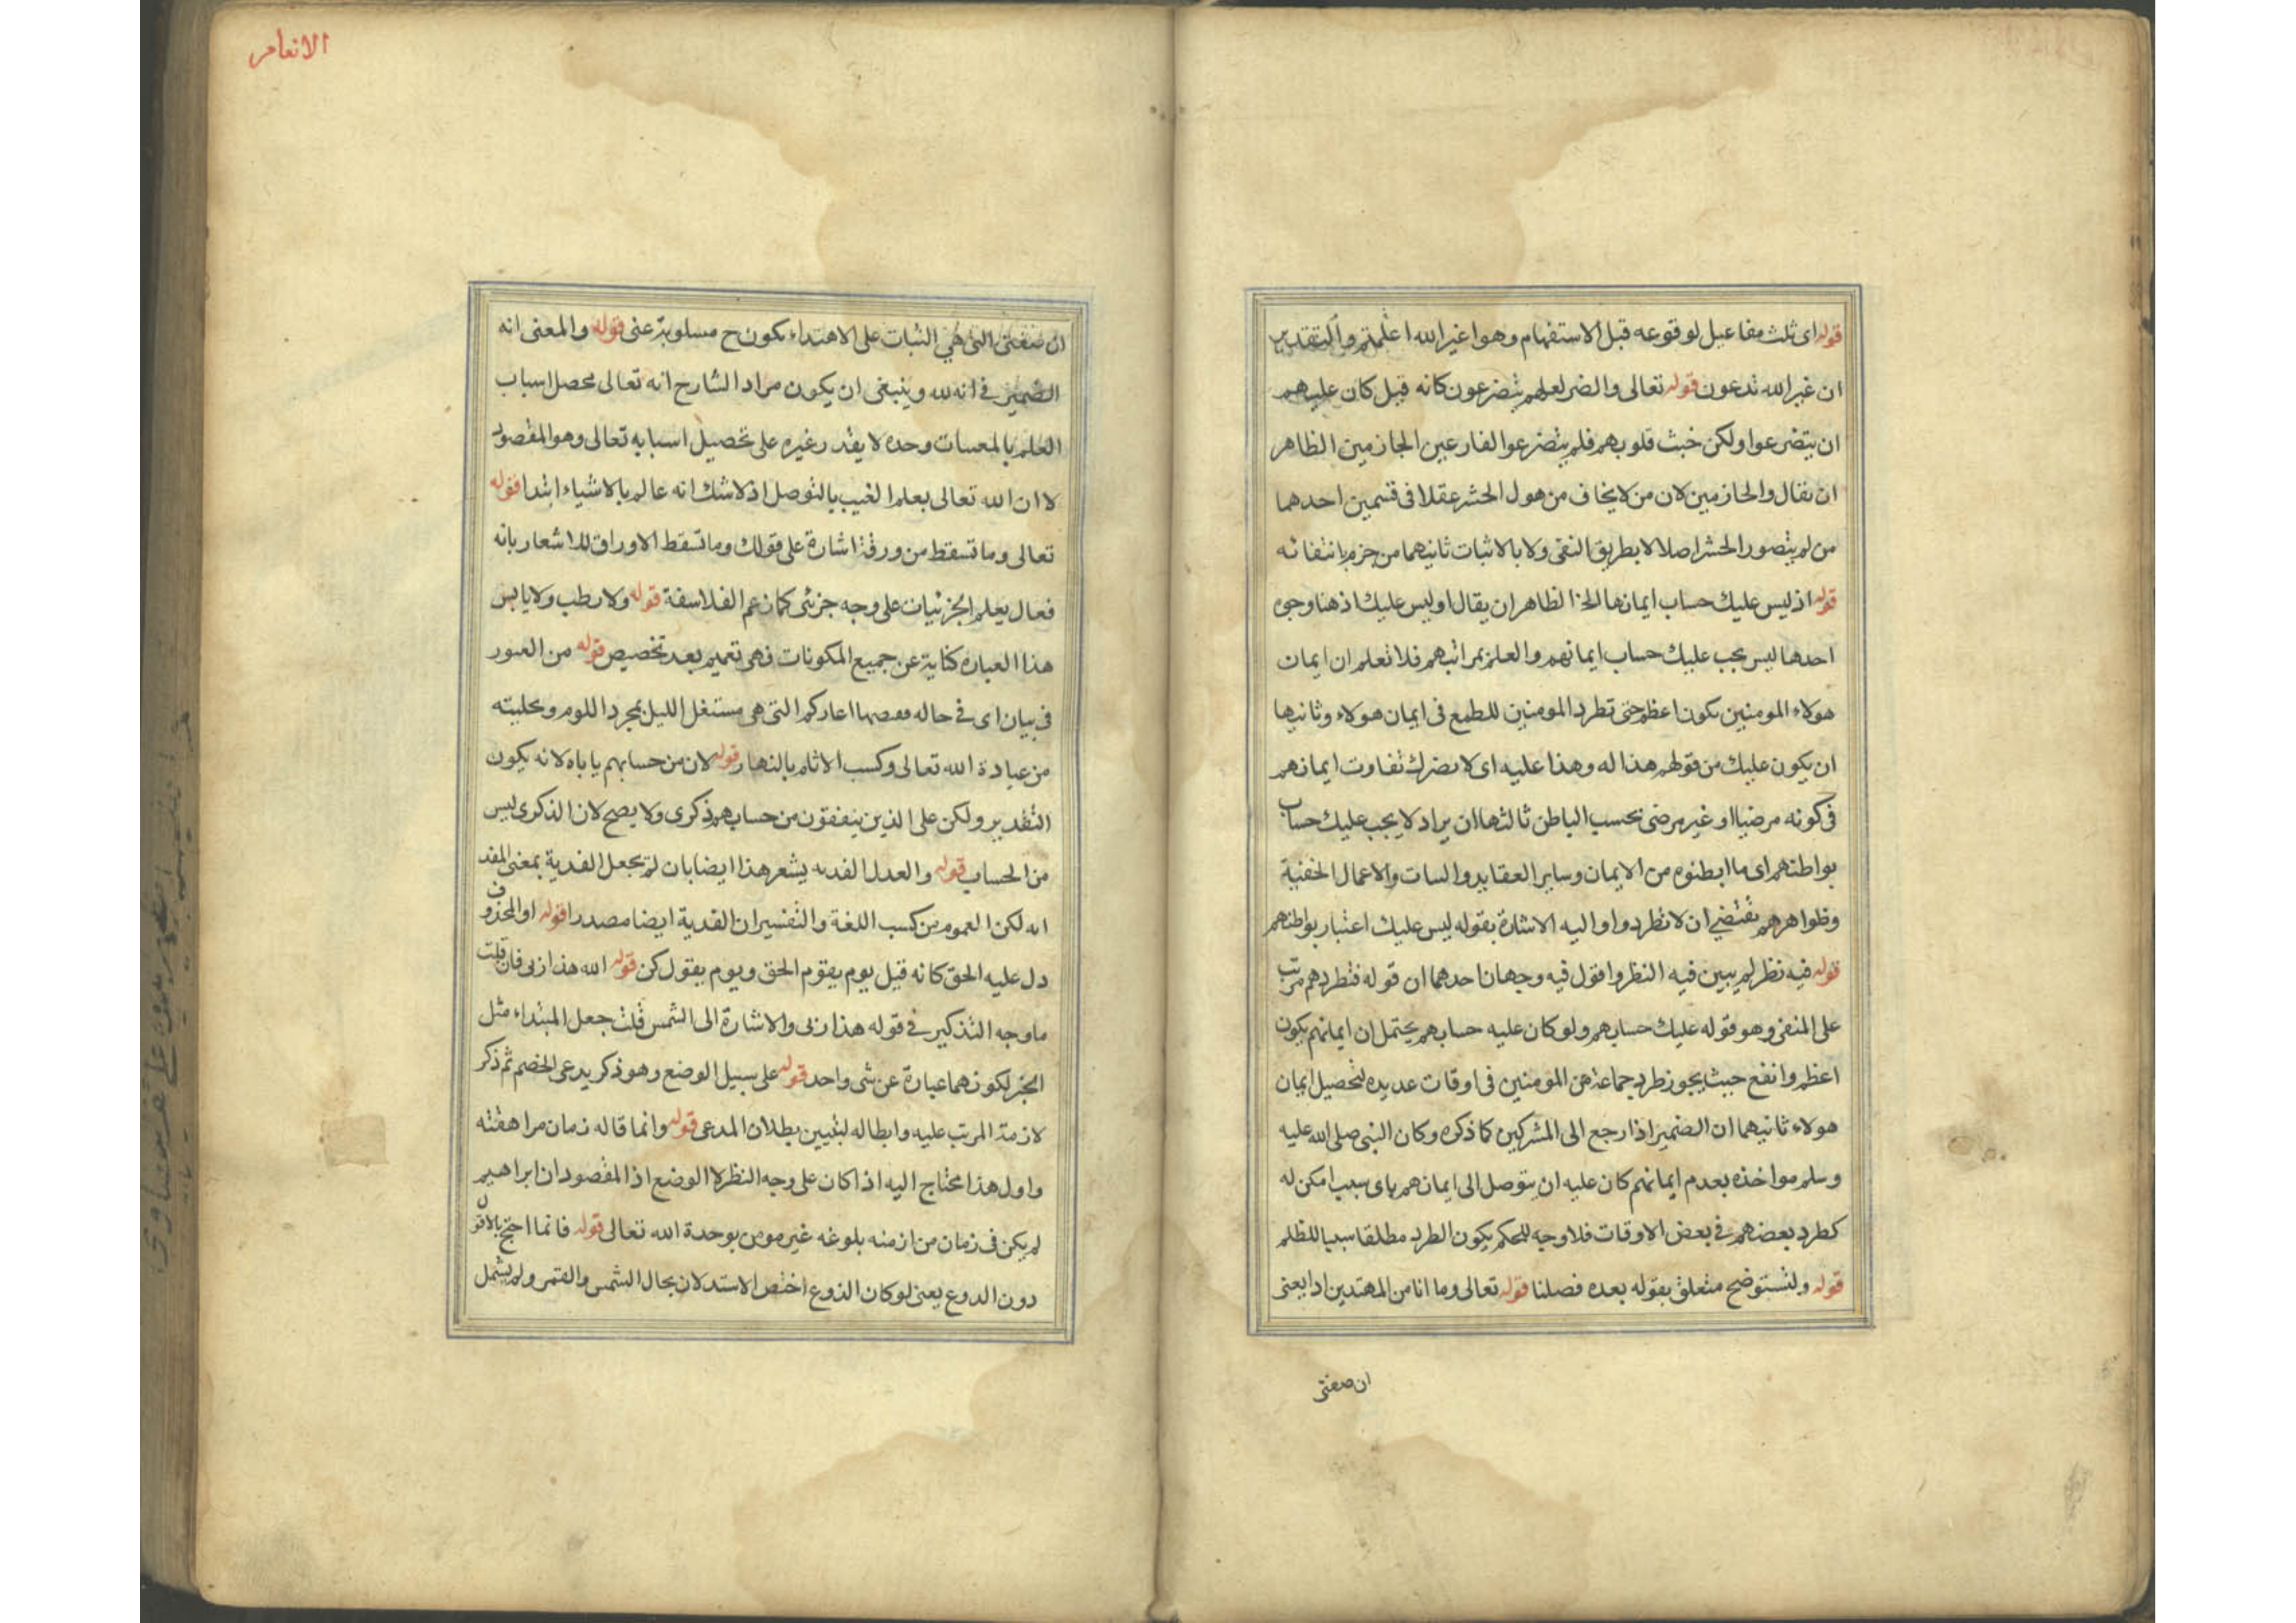 قوله اى ثلث مفاعيل لوقوعه قبل الاستفهام وهو اغير الله اعلمتم والتقدير
ان غير الله تدعون قوله تعالى والضر لعلهم يتضرعون كانه قيل كان عليهم
ان يتضرعوا ولكن خبث قلوبهم فلم يتضرعوا الفارعين الجازمين الظاهر
ان يقال والجازمين لان من لا يخاف من هول الحشر عقلا فى قسمين احدهما
من لم يتصور الحشر اصلا لا بطريق النفى ولا بالاثبات ثانيهما من جزم بانتفائه
قوله اذ ليس عليك حساب ايمانها الخ الظاهر ان يقال او ليس عليك اذ هنا وجوه
احدها ليس يجب عليك حساب ايمانهم والعلم بمراتبهم فلا تعلم ان ايمان
هولاء المومنين يكون اعظم حتى تطرد المومنين للطمع فى ايمان هولاء وثانيها
ان يكون عليك من قولهم هذا له وهذا عليه اى لا يضرك تفاوت ايمانهم
فى كونه مرضيا او غير مرضى بحسب الباطن ثالثها ان يراد لا يجب عليك حساب
بواطنهم اى ما ابطنوه من الايمان وساير العقايد والسات والاعمال الخفية
وظواهرهم يقتضى ان لا تطردوا واليه الاشارة بقوله ليس عليك اعتبار بواطنهم
قوله فيه نظر لم يبين فيه النظر واقول فيه وجهان احدهما ان قوله فتطردهم مرتب
على المنفى وهو قوله عليك حسابهم ولو كان عليه حسابهم يحتمل ان ايمانهم يكون
اعظم وانفع حيث يجوز طرد جماعة من المومنين فى اوقات عديده لتحصيل ايمان
هولاء ثانيهما ان الضمير اذا رجع الى المشركين كما ذكره وكان النبى صلى الله عليه
وسلم مواخذه بعدم ايمانهم كان عليه ان يتوصل الى ايمانهم باى سبب امكن له
كطرد بعضهم فى بعض الاوقات فلا وجه للحكم بكون الطرد مطلقا سببا للظلم
قوله ولتستوضح متعلق بقوله بعده فصلنا قوله تعالى وما انا من المهتدين اذ ايعنى
ان صفتى
الانعام
ان صفتى التى هى الثبات على الاهتداء يكون ح مسلوبة عنى قوله والمعنى انه
الضمير فى انه لله وينبغى ان يكون مراد الشارح انه تعالى محصل اسباب
العلم بالمغيبات وحده لا يقدر غيره على تحصيل اسبابه تعالى وهو المقصود
لا ان الله تعالى يعلم الغيب بالتوصل اذ لا شك انه عالم بالاشياء ابتدا قوله
تعالى وما تسقط من ورقة اشارة على قولك وما تسقط الاوراق للاشعار بانه
فعال يعلم الجزئيات على وجه جزئى كما زعم الفلاسفة قوله ولا رطب ولا يابس
هذا العباره كناية عن جميع المكونات فهى تعميم بعد تخصيص قوله من القبور
فى بيان اى فى حاله اعاركم التى هى مستغل الليل بمجرد اللوم وتخليته
من عبادة الله تعالى وكسب الاثام بالنهار قوله لان من حسابهم ياباه لانه يكون
التقدير ولكن على الذين يتفقون من حسابهم ذكرى ولا يصح لان الذكرى ليس
من الحساب قوله والعدل الفديه يشعر هذا ايضا بان لم تجعل الفدية بمعنى المفد
انه لكن العموم من كسب اللغة والتفسير ان الفدية ايضا مصدر قوله او المحذوف
دل عليه الحق كانه قيل يوم يقوم الحق ويوم يقول كن قوله الله هذا ربى فان قلت
ما وجه التذكير فى قوله هذا ربى والاشارة الى الشمس قلت جعل المبتداء مثل
الخبر لكونهما عبارة عن شى واحد قوله على سبيل الوضع وهو ذكر يدعى الخصم ثم ذكر
لازمة المرتب عليه وابطاله لتبيين بطلان المدعى قوله وانما قاله زمان مراهقته
واول هذا محتاج اليه اذا كان على وجه النظر لا الوضع اذ المقصود ان ابراهيم
لم يكن فى زمان من ازمنه بلوغه غير مومن بوحدة الله تعالى قوله فانما احتج بالافول
دون البزوغ يعنى لو كان البزوغ اختص الاستدلال بحال الشمس والقمر ولم يشمل